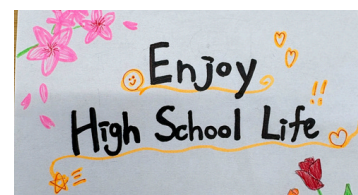 Enjoy
!!
High School Life